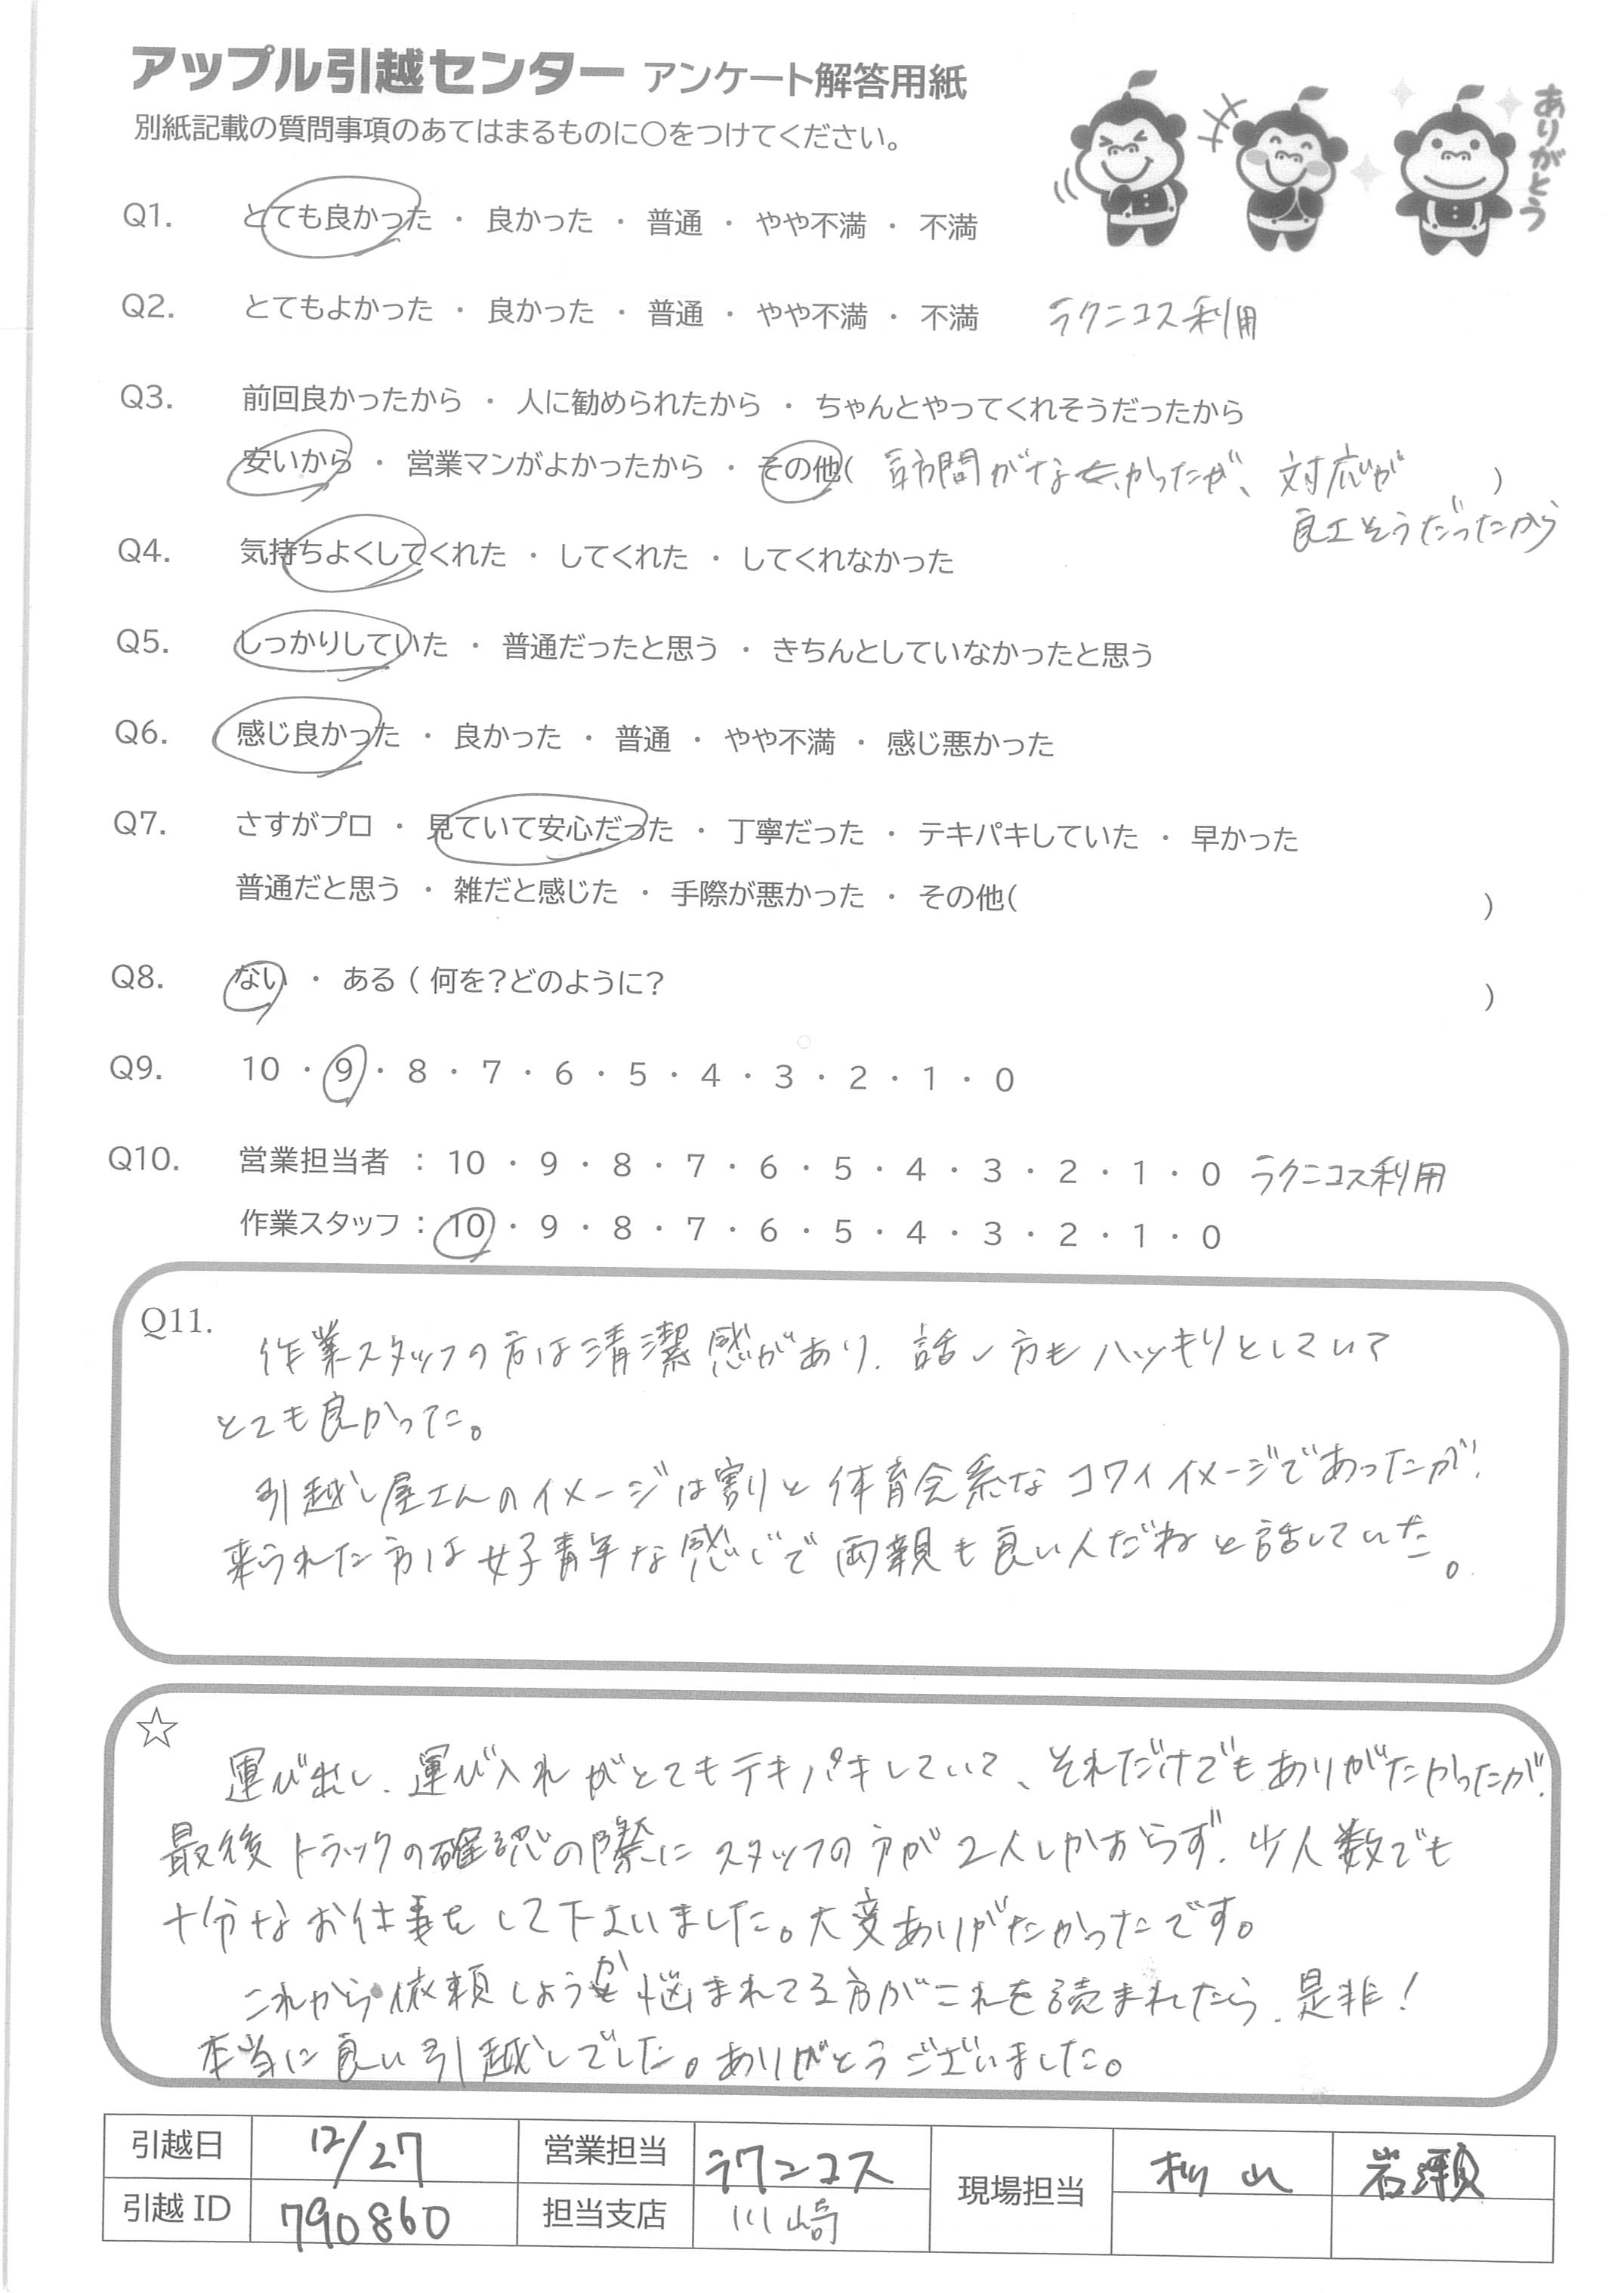 アップル引越センター アンケート解答用紙
別紙記載の質問事項のあてはまるものに○をつけてください。
ありがとう
Q1. とても良かった ・ 良かった ・ 普通 ・ やや不満 ・ 不満
Q2. とてもよかった ・ 良かった ・ 普通 ・ やや不満 ・ 不満 ラクニコス利用
Q3. 前回良かったから ・ 人に勧められたから ・ ちゃんとやってくれそうだったから
安いから ・ 営業マンがよかったから ・ その他( 訪問がなかったが、対応が )
良さそうだったから
Q4. 気持ちよくしてくれた ・ してくれた ・ してくれなかった
Q5. しっかりしていた ・ 普通だったと思う ・ きちんとしていなかったと思う
Q6. 感じ良かった ・ 良かった ・ 普通 ・ やや不満 ・ 感じ悪かった
Q7. さすがプロ ・ 見ていて安心だった ・ 丁寧だった ・ テキパキしていた ・ 早かった
普通だと思う ・ 雑だと感じた ・ 手際が悪かった ・ その他( )
Q8. ない ・ ある ( 何を?どのように? )
Q9. 10 ・ 9 ・ 8 ・ 7 ・ 6 ・ 5 ・ 4 ・ 3 ・ 2 ・ 1 ・ 0
Q10. 営業担当者 : 10 ・ 9 ・ 8 ・ 7 ・ 6 ・ 5 ・ 4 ・ 3 ・ 2 ・ 1 ・ 0 ラクニコス利用
作業スタッフ : 10 ・ 9 ・ 8 ・ 7 ・ 6 ・ 5 ・ 4 ・ 3 ・ 2 ・ 1 ・ 0
Q11. 作業スタッフの方は清潔感があり、話し方もハッキリとしていて
とても良かった。
引越し屋さんのイメージは割りと体育会系なコワイイメージであったが、
来られた方は好青年な感じで両親も良い人だねと話していた。
☆
運び出し、運び入れがとてもテキパキしていて、それだけでもありがたかったが、
最後トラックの確認の際にスタッフの方が2人しかおらず、少人数でも
十分なお仕事をして下さいました。大変ありがたかったです。
これから依頼しようか悩まれてる方がこれを読まれたら、是非!
本当に良い引越しでした。ありがとうございました。
引越日 12/27 営業担当 ラクニコス 現場担当 松山 岩瀬
引越ID 790860 担当支店 川崎